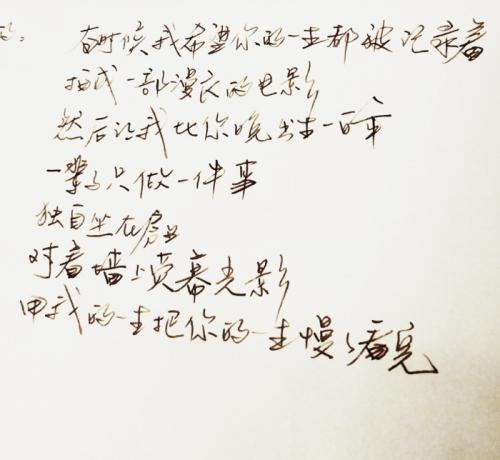 的。
有时候我希望你的一生都被记录着
拍成一部漫长的电影
然后让我比你晚出生一百年
一辈子只做一件事
独自坐在房里
对着墙上荧幕光影
用我的一生把你的一生慢々看完